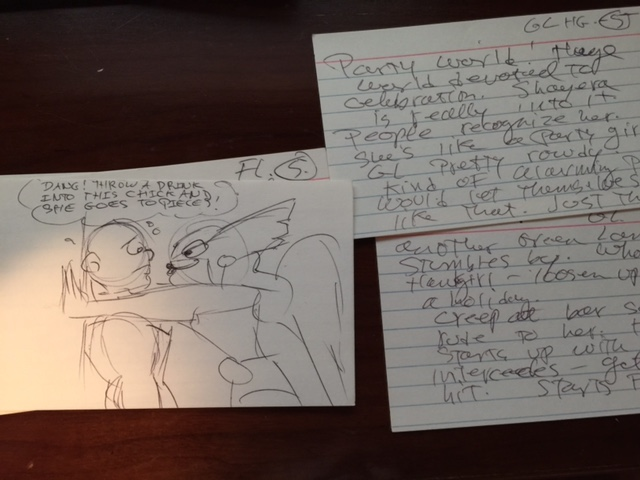 FL. 5.
DANG! THROW A DRINK
INTO THIS CHICK AND
SHE GOES TO PIECES!
GLHG. 5
Party world! Huge
world devoted to
celebration. Shayera
is really into it
People recognize her.
She's like a party gir
GL pretty rowdy
kind of alarming
would let themselves
like that. Just th
another Green Lan
stumbles by. Who
Hawgirl - loosen up
a holiday.
creep at her
rude to her.
Starts up with
intercedes - get
hit. Starts